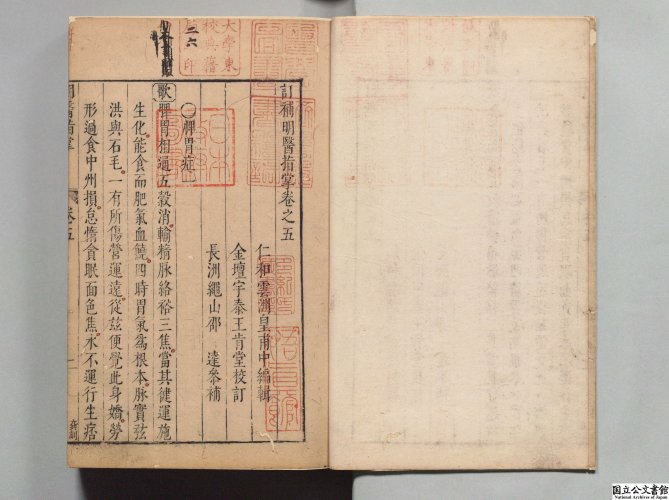 訂補明醫指掌卷之五
仁和雲洲皇甫中編輯
金壇宇泰王肯堂校訂
長洲繩山邵達參補
〇脾胃症
歌 脾胃相通五穀消輸精脉絡裕三焦當其健運施
生化能食而肥氣血饒四時胃氣爲根本脉實弦
洪與石毛一有所傷營運遠從兹便覺此身嬌勞
形過食中州損怠惰貪眠面色焦水不運行生痞
明醫指掌
卷五
一
二六
大學東
校典籍
國立公文書館
National Archives of Japan